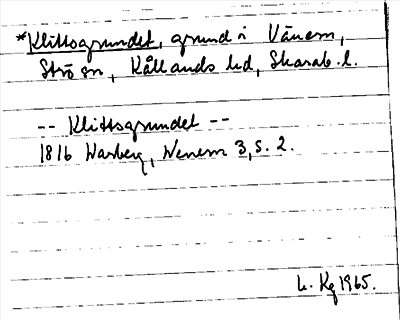 *Klittsgrundet, grund i Vänern,
Strö sn, Kållands hd, Skarab. l.
-- Klittsgrundet --
1816 Warberg, Wenern 3, S. 2.
L. Kg 1965.